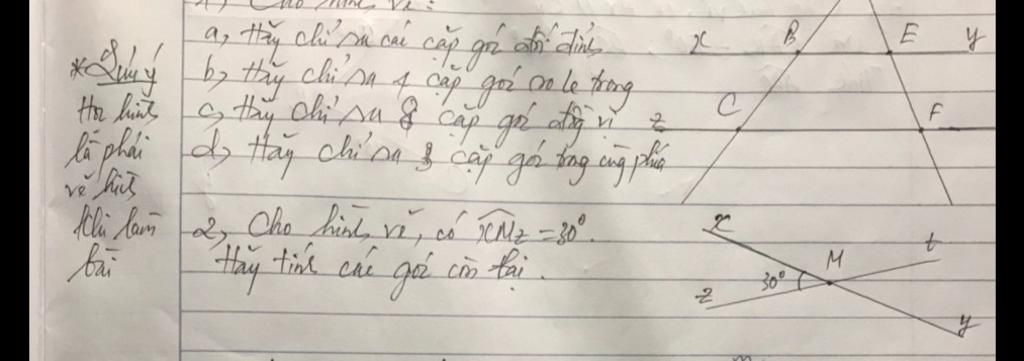 1, Cho hình vẽ:
a, Hãy chỉ ra các cặp góc đối đỉnh
b, Hãy chỉ ra 4 cặp góc so le trong
c, Hãy chỉ ra 8 cặp góc đồng vị
d, Hãy chỉ ra cặp góc trong cùng phía
* Lưu ý
Học hình
là phải
vẽ hình
khi làm
bài
x B E y
z C F
2, Cho hình vẽ, có xMz = 30°.
Hãy tính các góc còn lại.
x
M t
30°
z
y